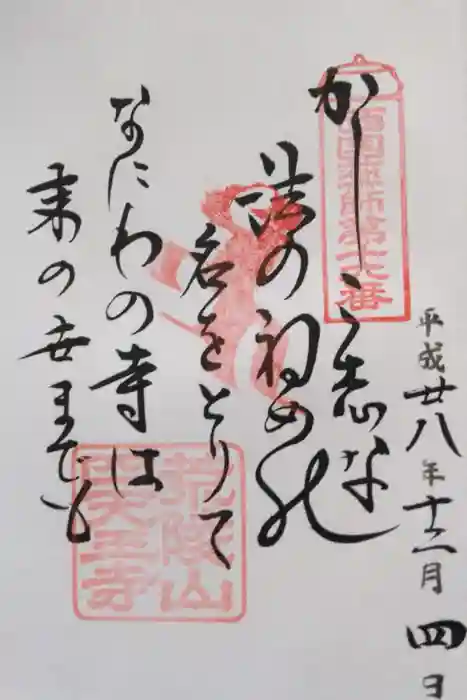 平成廿八年十二月四日
西国薬師第十六番
かしこ志な
法の初めの
名をとりて
なにわの寺は
末の世までも
荒陵山
四天王寺